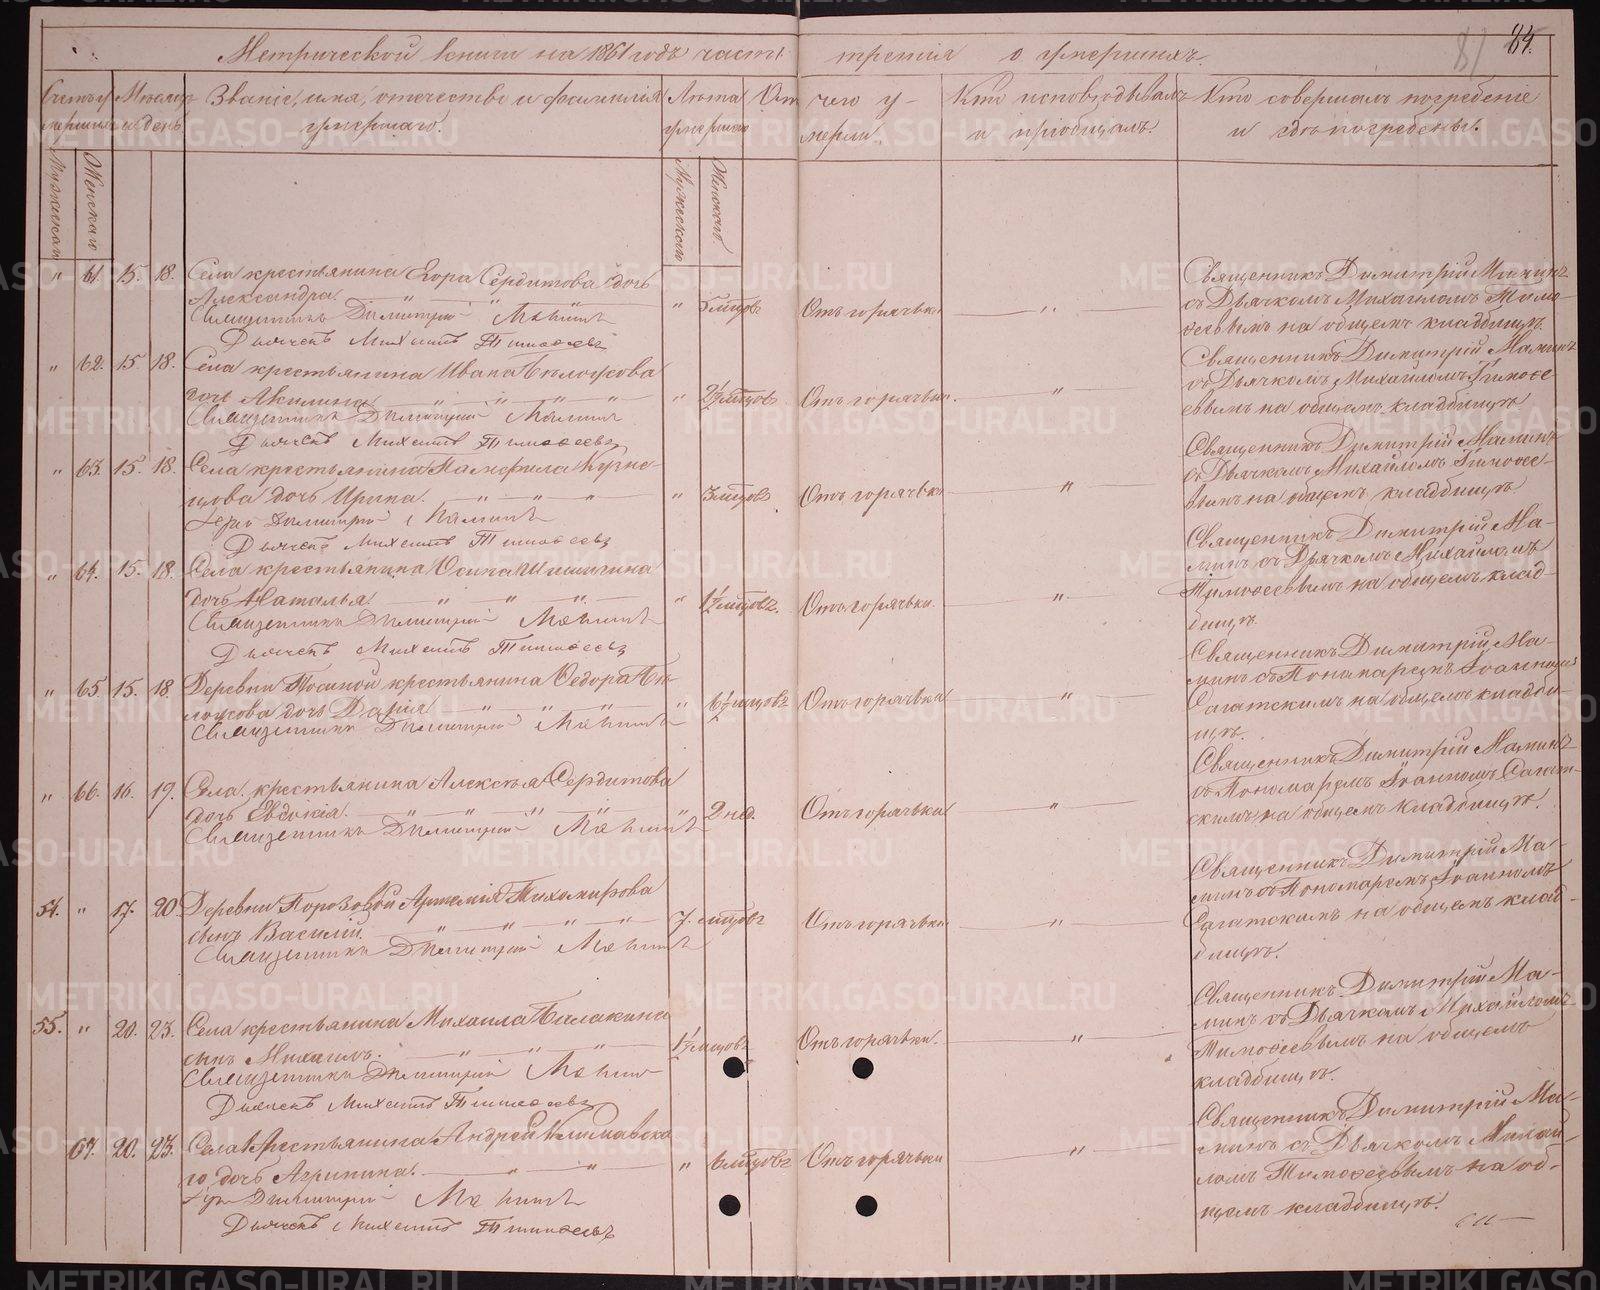 84.
81
Метрической книги на 1861 годъ часть третія о умершихъ.
Счетъ умершихъ
Мужескаго
Женскаго
Мѣсяцъ и день
Званіе, имя, отчество и фамилія умершаго.
Лѣта умершаго
Мужескаго
Женскаго
Отъ чего умерли.
Кто исповѣдывалъ и пріобщалъ.
Кто совершалъ погребеніе и гдѣ погребены.
" 61. 15. 18. Села крестьянина Егора Сердитова дочь
Александра. " "
Священникъ Димитрій Маминъ
Дьячекъ Михаилъ Тимоѳеевъ
" 5 мѣцовъ Отъ горячьки "
Священникъ Димитрій Маминъ
съ Дьячкомъ Михаиломъ Тимо-
ѳеевымъ на общемъ кладбищѣ.
" 62. 15. 18. Села крестьянина Ивана Бѣлоусова
дочь Акилина. " " " "
Священникъ Димитрій Маминъ
Дьячекъ Михаилъ Тимоѳеевъ
" 2½ мѣцовъ Отъ горячьки. "
Священникъ Димитрій Маминъ
съ Дьячкомъ Михайломъ Тимоѳе-
евымъ на общемъ кладбищѣ
" 63. 15. 18. Села крестьянина Памфила Кузне-
цова дочь Ирина. " " "
Димитрій Маминъ
Дьячекъ Михаилъ Тимоѳеевъ
" 3 мѣцовъ Отъ горячьки "
Священникъ Димитрій Маминъ
съ Дьячкомъ Михайломъ Тимоѳе-
вымъ на общемъ кладбищѣ
" 64. 15. 18. Села крестьянина Осипа Шишигина
дочь Наталья. " " "
Священникъ Димитрій Маминъ
Дьячекъ Михаилъ Тимоѳеевъ
" 1½ мѣцовъ. Отъ горячьки. "
Священникъ Димитрій Ма-
минъ съ Дьячкомъ Михайломъ
Тимоѳеевымъ на общемъ клад-
бищѣ.
" 65 15. 18. Деревни крестьянина Ѳедора Бѣ-
лоусова дочь Дарія " " "
Священникъ Димитрій Маминъ
" 6½ мѣцовъ Отъ горячьки "
Священникъ Димитрій Ма-
минъ съ Пономаремъ Іоанномъ
Сагатскимъ на общемъ кладби-
щѣ.
" 66. 16. 19. Села крестьянина Алексѣя Сердитова
дочь Евдокія. " " "
Священникъ Димитрій Маминъ
" 2 нед. Отъ горячьки "
Священникъ Димитрій Маминъ
съ Пономаремъ Іоанномъ Сагат-
скимъ на общемъ кладбищѣ.
54. " 17. 20. Деревни Порозовой Артемія Тихомирова
сынъ Василій. " " " "
Священникъ Димитрій Маминъ
7. мѣцовъ Отъ горячьки "
Священникъ Димитрій Ма-
минъ съ Пономаремъ Іоанномъ
Сагатскимъ на общемъ клад-
бищѣ.
55. " 20. 23. Села крестьянина Михаила Балакина
сынъ Михаилъ. " " "
Священникъ Димитрій Маминъ
Дьячекъ Михаилъ Тимоѳеевъ
1½ мѣцовъ Отъ горячьки. "
Священникъ Димитрій Ма-
минъ съ Дьячкомъ Михайломъ
Тимоѳеевымъ на общемъ
кладбищѣ.
67. 20. 23. Села Крестьянина Андрея Климовска-
го дочь Агрипина. " "
Димитрій Маминъ
Дьячекъ Михаилъ Тимоѳеевъ
" 6 мѣцовъ Отъ горячьки "
Священникъ Димитрій Ма-
минъ съ Дьячкомъ Михаи-
ломъ Тимоѳеевымъ на об-
щемъ кладбищѣ.
METRIKI.GASO-URAL.RU